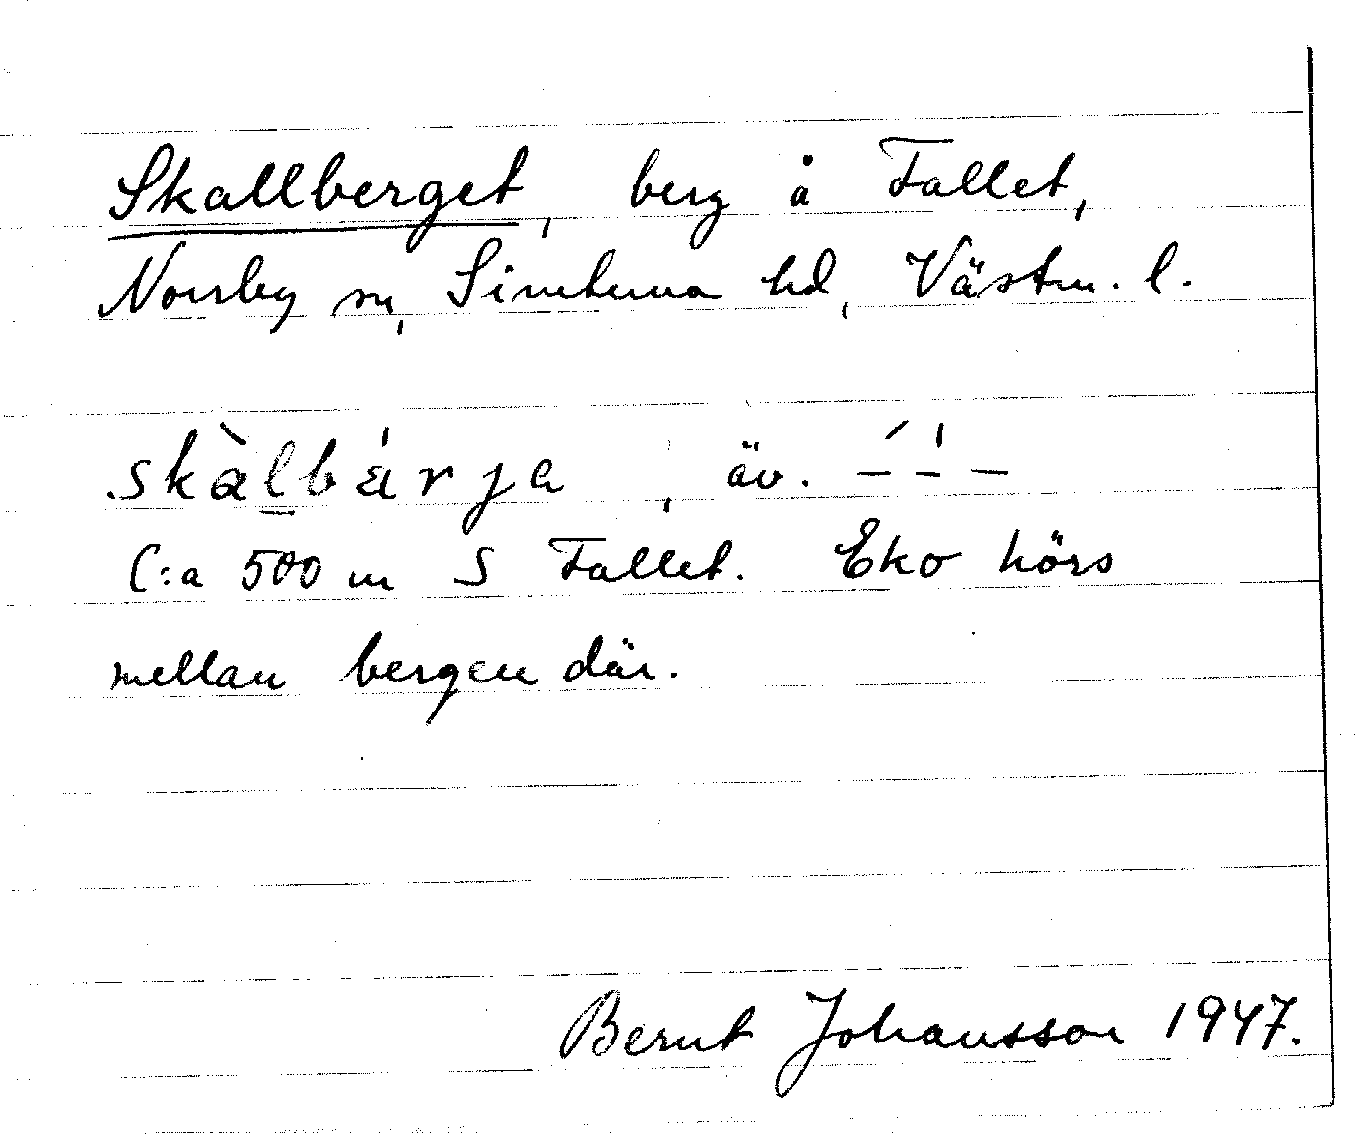 Skallberget, berg å Fallet,
Norrby sn, Simtuna hd, Västm. l.
skàlbárja, äv.
C:a 500 m S Fallet. Eko hörs
mellan bergen där.
Bernt Johansson 1947.